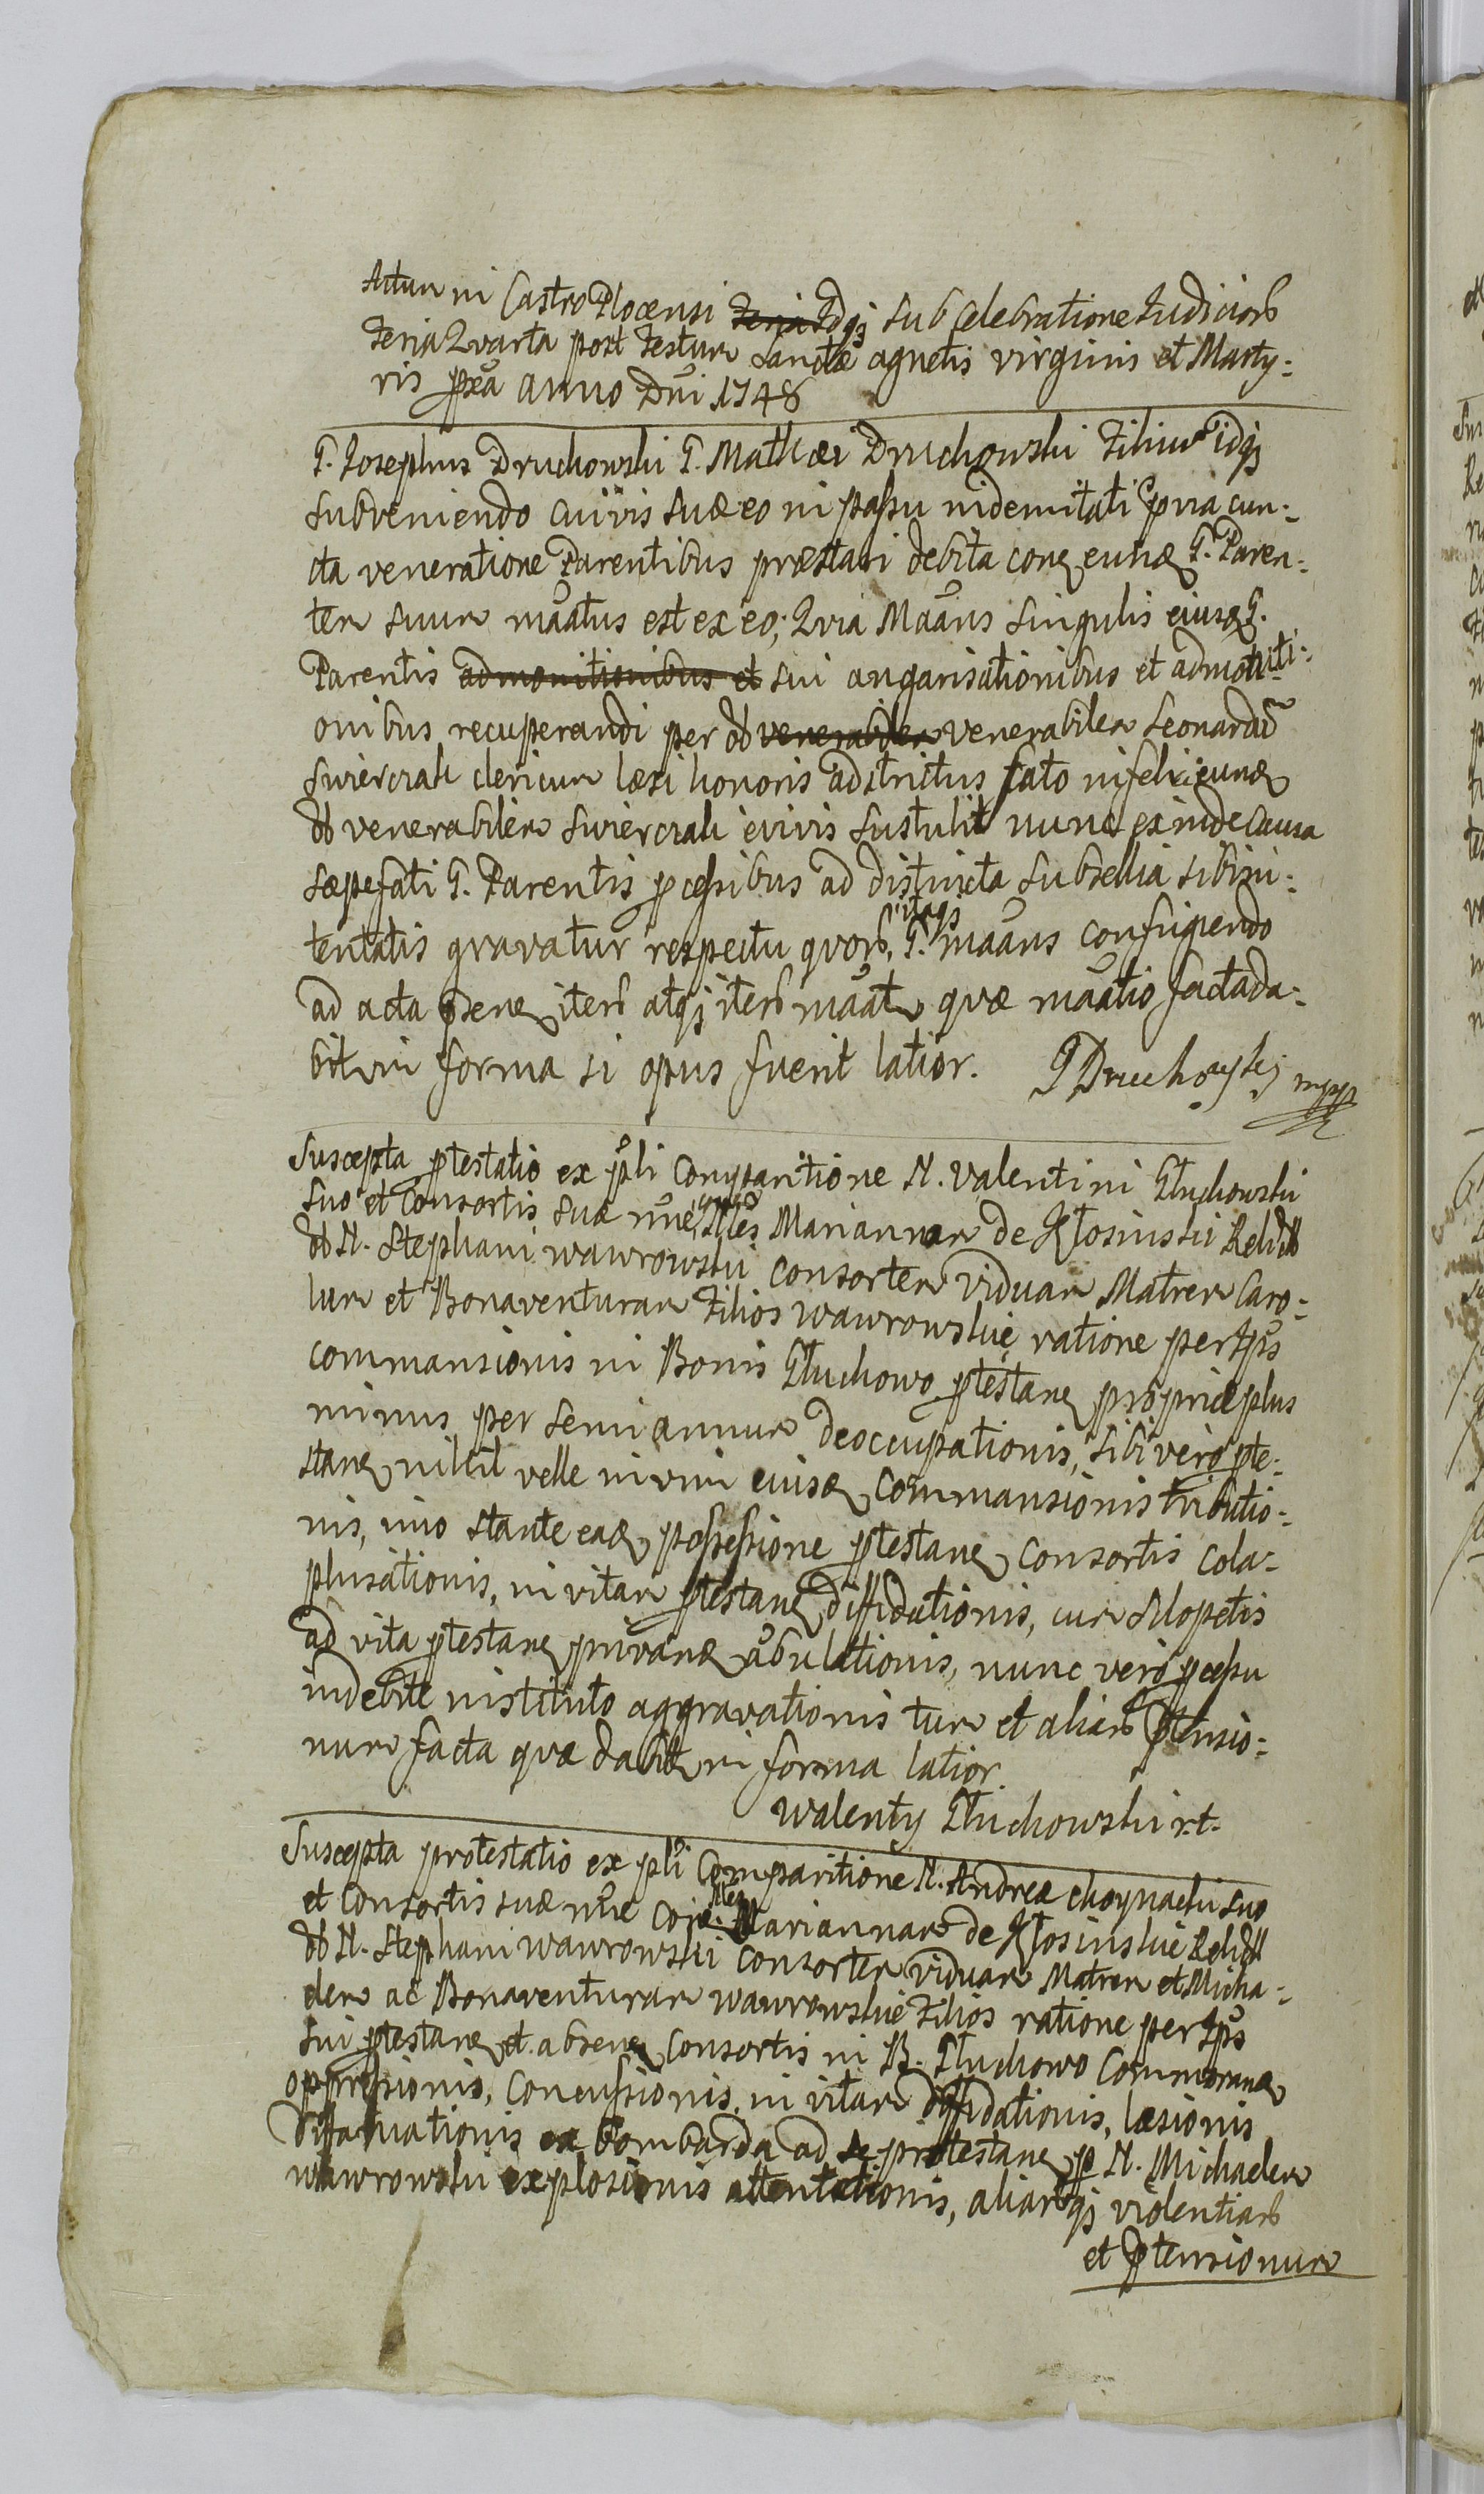 Actum in Castro Plocensi Feria Idq; sub Celebratione Judiciorb
Feria Qvarta post Festum Sanctæ agnetis virginis et Marty:
ris pxa anno Dni 1748
G. Josephus Druchowski G. Mathæi Druchowski Filius idq;
subveniendo cuivis suæ eo in passu indemitati pvia cun:
cta veneratione Parentibus præstari debita conq eunq G. Paren:
tem suum maatus est ex eo; Qvia Maans singulis eiusq G.
Parentis admonitionibus et sui angarisationibus et admoniti:
onibus recuperandi per ob venerabilem venerabilem Leonardū
Swierczali clericum læsi honoris adstrictus fato infelici eunq
ob venerabilem Swierczali e vivis sustulit nunc exinde causa
sæpefati G. Parentis pcessibus ad distincta subsellia sibi in:
tentatis gravatur respectu qvorb, itaq; G. maans confugiendo
ad acta psenq iterb atq; iterb maatr quæ maatio facta da:
bitur in forma si opus fuerit latior. G Druchowskj mpp
Suscepta ptestatio ex pli Comparitione N. Valentini Głuchowski
suo et Consortis suæ nne contra Nles Mariannam de Kłosinskii Relict
ob N. Stephani Wawrowski consortem viduam Matrem Caro:
lum et Bonaventuram Filios Wawrowskie ratione per Ips
commansionis in Bonis Głuchowo ptestanq propriæ plus
minus per semi annum deoccupationis, sibi vero pte:
stanq nihil velle in vim eiusq Commansionis tributio:
nis, imo stante eadq possessione ptestanq Consortis cola:
phisationis, in vitam ptestanq diffidationis, cum Sclopetis
ad vita ptestanq privanq abulationis, nunc vero pcessu
indebite instituto aggravationis tum et aliarb ptensio:
num facta quæ dabitr in forma latior.
Walenty Głuchowski r.t.
Suscepta protestatio ex pli Comparitione N. Andreæ Choynacki suo
et Consortis suæ nne Cone. Nles Mariannam de Kłosinskie Relict
ob N. Stephani Wawrowski Consortem viduam Matrem et Micha:
elem ac Bonaventuram Wawrowskie Filios ratione per Ips
sui ptestanq et absenq Consortis in B. Głuchowo Commoranq
oppressionis, Concussionis, in vitam diffidationis, læsionis
diffamationis ex bombarda ad se protestanq p N. Michaelem
Wawrowski explosionis attentationis, aliarbq; violentiarb
et ptensionum